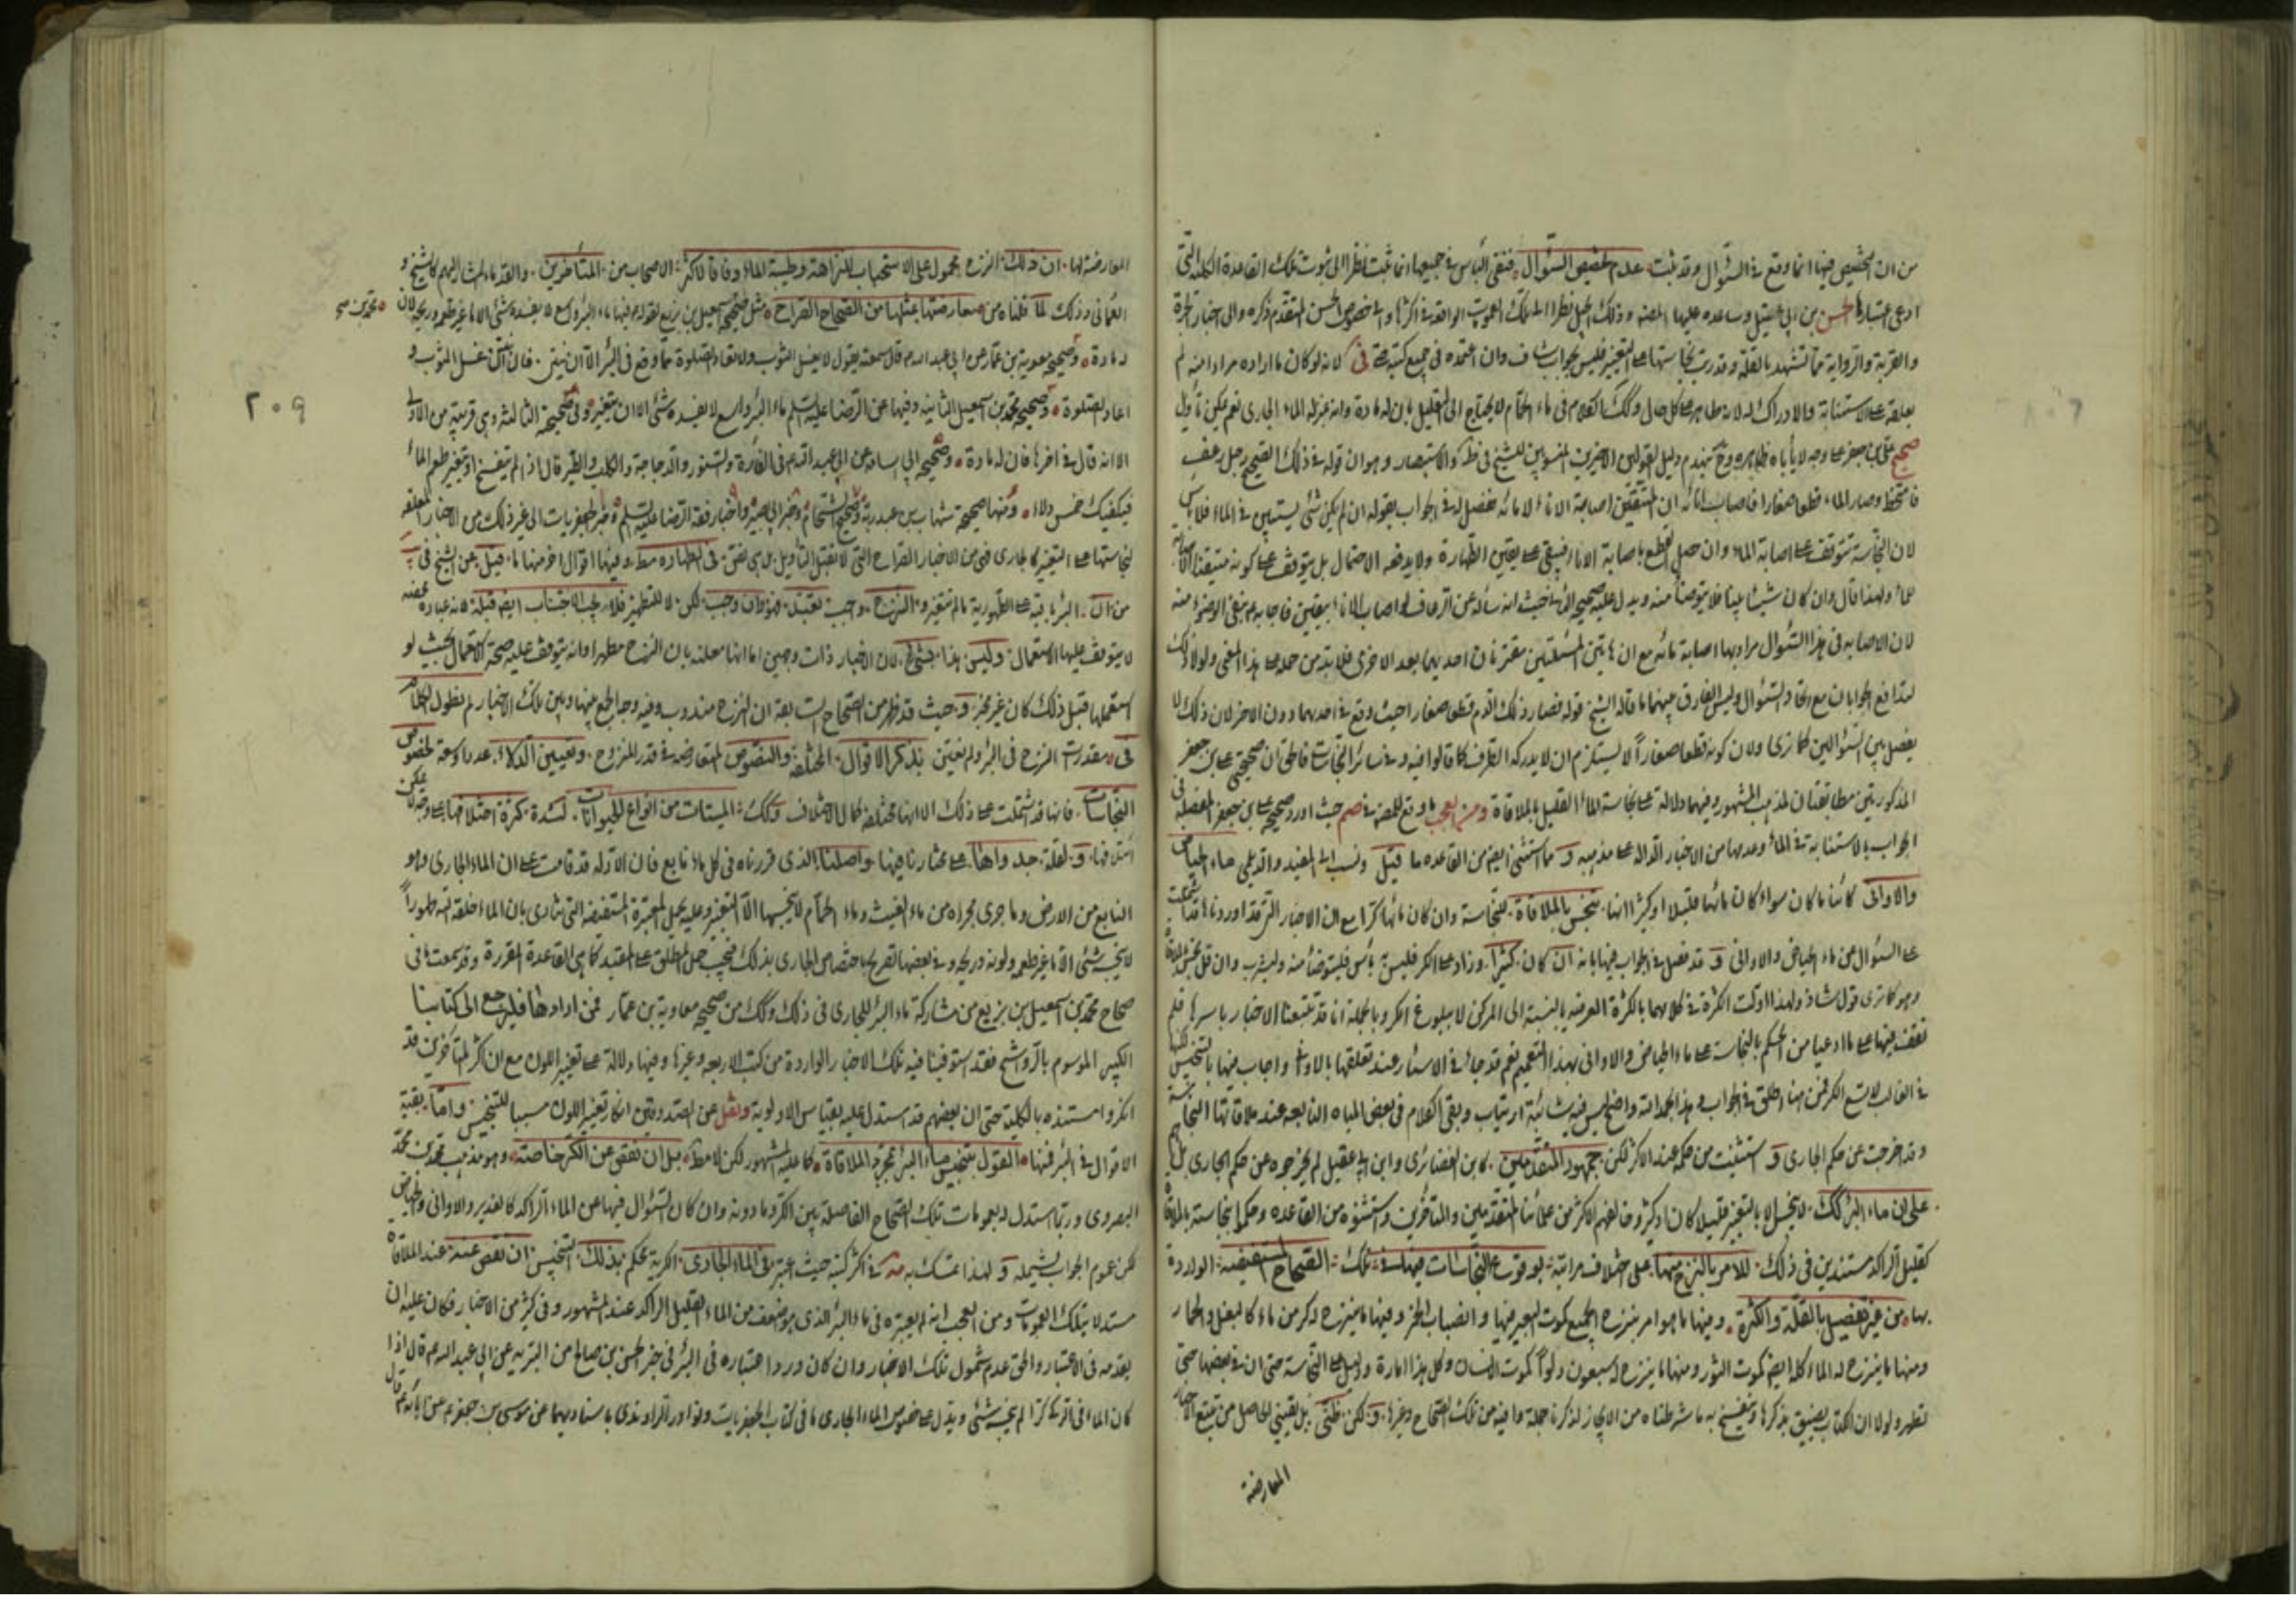 من ان التخصيص فيها انما وقع في السؤال وقد ثبت عدم تخصيص السؤال فنفى البأس في جميعها انما ثبت نظرا الى ثبوت تلك القاعدة الكلية التي
ادعى اعتبارها الحسن بن ابي عقيل وساعده عليها المصنف وذلك الحمل نظرا الى تلك العمومات الواقعة في اكثرها والى خصوص الحسن المتقدم ذكره والى اخبار الجرة
والقربة والرواية مما تشهد بالقلة وقد رتب نجاستها على التغيير فليس بجواب شاف وان اعتمده في جميع كتبه لانه لو كان ما اراده مرادا منه لم
يعلقه على الاستنابة والادراك له لانه مطهر على كل حال وكك الكلام في ماء الحمام لا يحتاج الى التعليل بان له مادة وانه بمنزلة الماء الجاري نعم يمكن تأويل
صحيح علي بن جعفر على وجه لا يأباه ظاهره وح ينهدم دليل القولين الاخيرين المنسوبين للشيخ في ط والاستبصار وهو ان قوله في ذلك الصحيح رجل رعف
فامتخط وصار الماء قطعا صغارا فاصاب انائه ان المتيقن اصابة الاناء لا مائه ففصل له في الجواب بقوله ان لم يكن شئ يستبين في الماء فلا بأس
لان النجاسة تتوقف على اصابة الماء وان حصل القطع باصابة الاناء فيبقى على يقين الطهارة ولا يدفعه الاحتمال بل يتوقف على كونه متيقنا
ولهذا قال وان كان شيئا بينا فلا يتوضأ منه ويدل عليه صحيحه الاخر حيث انه سأله عن الرعاف لو اصاب الاناء بيقين فاجابه بنفي الوضوء منه
لان الاصابة في هذا السؤال مراد بها اصابة مائه مع ان هاتين المسئلتين مقترنان احديهما بعد الاخرى فلا بد من حمله على هذا المعنى ولولا ذلك
لتدافع الجوابان مع اتحاد السؤال وليس الفارق بينهما ما قاله الشيخ قوله فصار ذلك الدم قطعا صغارا حيث وقع في احدهما دون الاخر لان ذلك لا
يفصل بين السؤالين كما ترى ولان كونه قطعا صغارا لا يستلزم ان لا يدركه الطرف كما قالوا فيه وفي سائر النجاسات فاطق ان صحيحي علي بن جعفر
المذكورتين مطابقتان لمذهب المشهور وفيهما دلالة على نجاسة الماء القليل بالملاقاة ومن العجب ما وقع للمصنف حيث اورد صحيحة علي بن جعفر المفصلة في
الجواب بالاستنابة في الماء وعدمها من الاخبار الدالة على مذهبه و مما استثنى ايضا من القاعدة ما قيل ونسب الى المفيد والديلمي ماء الحياض
والاواني كائنا ما كان سواء كان مائها قليلا او كثيرا انها تنجس بالملاقاة للنجاسة وان كان مائها كرا مع ان الاخبار التي قد اوردناها قد اشتملت
على السؤال عن ماء الحياض والاواني و قد فصل في الجواب فيها بانه ان كان كثيرا وزاد على الكر فليس به بأس فليتوضأ منه وليشرب وان قل
وهو كما ترى قول شاذ ولهذا اولت الكثرة في كلامهما بالكثرة العرفية بالنسبة الى المركن لا ببلوغ الكر وبالجملة انا قد تتبعنا الاخبار باسرها فلم
نقف فيها على ما ادعيا من الحكم بالنجاسة على ماء الحياض والاواني بهذا التعميم نعم قد جاء في الاسئار عند تعلقها بالاواني واجاب فيها بالتنجيس لكنها
في الغالب لا تسع الكر فمن هنا اطلق في الجواب وهذا بحمد الله واضح ليس فيه شائبة ارتياب وبقي الكلام في بعض المياه النابعة عند ملاقاتها النجاسة
وقد خرجت عن حكم الجاري و استثنيت من حكمه عند الاكثر لكن جمهور المتقدمين كابن الغضائري وابن ابي عقيل لم يخرجوه عن حكم الجاري بل
على ان ماء البئر كك لا ينجس الا بالتغير قليلا كان او كثيرا وخالفهم الاكثر من علمائنا المتقدمين والمتأخرين واستثنوه من القاعدة وحكموا بنجاسته بالملاقاة
كقليل الراكد مستندين في ذلك للامر بالنزح منها على اختلاف مراتبه لوقوع النجاسات فيها في تلك الصحاح المستفيضة الواردة
بها من غير تفصيل بالقلة والكثرة وفيها ما هو امر بنزح الجميع كموت البعير فيها وانصباب الخمر وفيها ما ينزح له كر من ماء كالبغل والحمار
ومنها ما ينزح له الماء كله ايضا كموت الثور ومنها ما ينزح له سبعون دلوا كموت الانسان وكل هذا امارة ودليل على النجاسة حتى ان في بعضها حتى
تطهر ولولا ان الكتاب يضيق بذكرها وينفسخ به ما شرطناه من الايجاز لذكرنا جملة وافية من تلك الصحاح وغيرها و لكن ظني بل يقيني الحاصل من تتبع الاخبار
المعارضة
المعارضة لها ان ذلك النزح محمول على الاستحباب للنزاهة وطيبة الماء وفاقا لاكثر الاصحاب من المتأخرين والقدماء المشار اليهم كالشيخ و
العماني وذلك لما قلناه من معارضتها بمثلها من الصحاح الصراح مثل صحيح اسمعيل بن بزيع لقوله فيها ماء البئر واسع لا يفسده شئ الا ما غير طعمه وريحه لان
محمد بن صح
له مادة وصحيح معوية بن عمار عن ابي عبد الله قال سمعته يقول لا يغسل الثوب ولا تعاد الصلوة مما وقع في البئر الا ان ينتن فان انتن غسل الثوب و
٢٠٩
اعاد الصلوة وصحيح محمد بن اسمعيل الثانية وفيها عن الرضا عليه السلم ماء البئر واسع لا يفسده شئ الا ان يتغير وفي صحيحه الثالثة وهي قريبة من الاولى
الا انه قال في اخرها فان له مادة وصحيح ابي اسامة عن ابي عبد الله في الفأرة والسنور والدجاجة والكلب والطير قال اذا لم يتفسخ او يتغير طعم الماء
فيكفيك خمس دلاء ومنها صحيح شهاب بن عبد ربه وصحيح الشحام وخبر ابي بصير واخبار فقه الرضا عليه السلم وخبر الجعفريات الى غير ذلك من الاخبار المعلقة
لنجاستها على التغير كالجاري فهي من الاخبار الصراح التي لا تقبل التأويل بل هي نص في الطهارة مط وفيها اقوال اخر منها ما قيل عن الشيخ في
من ان البئر باقية على الطهورية ما لم تتغير و النزح واجب تعبد فهو وان وجب لكن لا للتطهير فلا يجب الاجتناب ايضا قبله لانه عبادة محضة
لا يتوقف عليها الاستعمال وليس هذا بشئ لان الاخبار ذات وجهين اما انها معللة بان النزح مطهر او انه يتوقف عليه صحة الاستعمال بحيث لو
استعملها قبل ذلك كان غير مجز و حيث قد ظهر من الصحاح السابقة ان النزح مندوب وفيه وجه الجمع بينها وبين تلك الاخبار لم نطول الكلام
في مقدرات النزح في البئر ولم نعتن بذكر الاقوال المختلفة والنصوص المتعارضة في قدر المنزوح وتعيين الدلاء عددا وسعة لخصوص
النجاسات فانها قد اشتملت على ذلك الا انها مختلفة كمال الاختلاف وكك الميتات من انواع الحيوانات لشدة كثرة اختلافها على وجه لا يمكن
ائتلافها و لقلة جدواها على مختارنا فيها واصلنا الذي قررناه في كل ماء نابع فان الادلة قد قامت على ان الماء الجاري وهو
النابع من الارض وما جرى مجراه من ماء الغيث وماء الحمام لا ينجسها الا التغير وعليه تحمل المعتبرة المستفيضة التي تنادي بان الماء خلقه الله طهورا
لا ينجسه شئ الا ما غير طعمه ولونه وريحه وفي بعضها التصريح باختصاص الجاري بذلك فيجب حمل المطلق على المقيد كما هي القاعدة المقررة وقد سمعت ما في
صحاح محمد بن اسمعيل بن بزيع من مشاركة ماء البئر للجاري في ذلك وكك من صحيح معاوية بن عمار فمن ارادها فليرجع الى كتابنا
الكبير الموسوم بالرواشح فقد استوفينا فيه تلك الاخبار الواردة من كتب الاربعة وغيرها وفيها دلالة على تغير اللون مع ان اكثر المتأخرين قد
انكروا مستنده بالكلية حتى ان بعضهم قد استدل عليه بقياس الاولوية ونقل عن الصدوقين انكار تغيير اللون مسببا للتنجيس واما بقية
الاقوال في البئر فمنها القول بتنجيس ماء البئر بمجرد الملاقاة كما عليه المشهور لكن لا مط بل ان نقص عن الكر خاصة وهو مذهب محمد بن محمد
البصروي وربما استدل له بعمومات تلك الصحاح الفاصلة بين الكر وما دونه وان كان السؤال فيها عن الماء الراكد كالغدير والاواني والحياض
لكن عموم الجواب يشمله و لهذا تمسك به في اكثر كتبه حيث اعتبر في الماء الجاري الكرية بحكم بذلك التنجيس ان نقص عنه عند الملاقاة
مستدلا بتلك العمومات ومن العجب انه لم يعتبره في ماء البئر الذي هو اضعف من الماء القليل الراكد عند المشهور وفي كثير من الاخبار فكان عليه ان
يقدمه في الاعتبار والحق عدم شمول تلك الاخبار وان كان ورد اعتباره في البئر في خبر الحسن بن صالح من البترية عن ابي عبد الله قال اذا
كان الماء في الركي كرا لم ينجسه شئ ويدل على خصوص الماء الجاري ما في كتاب الجعفريات ونوادر الراوندي باسناديهما عن موسى بن جعفر عن ابائه قال